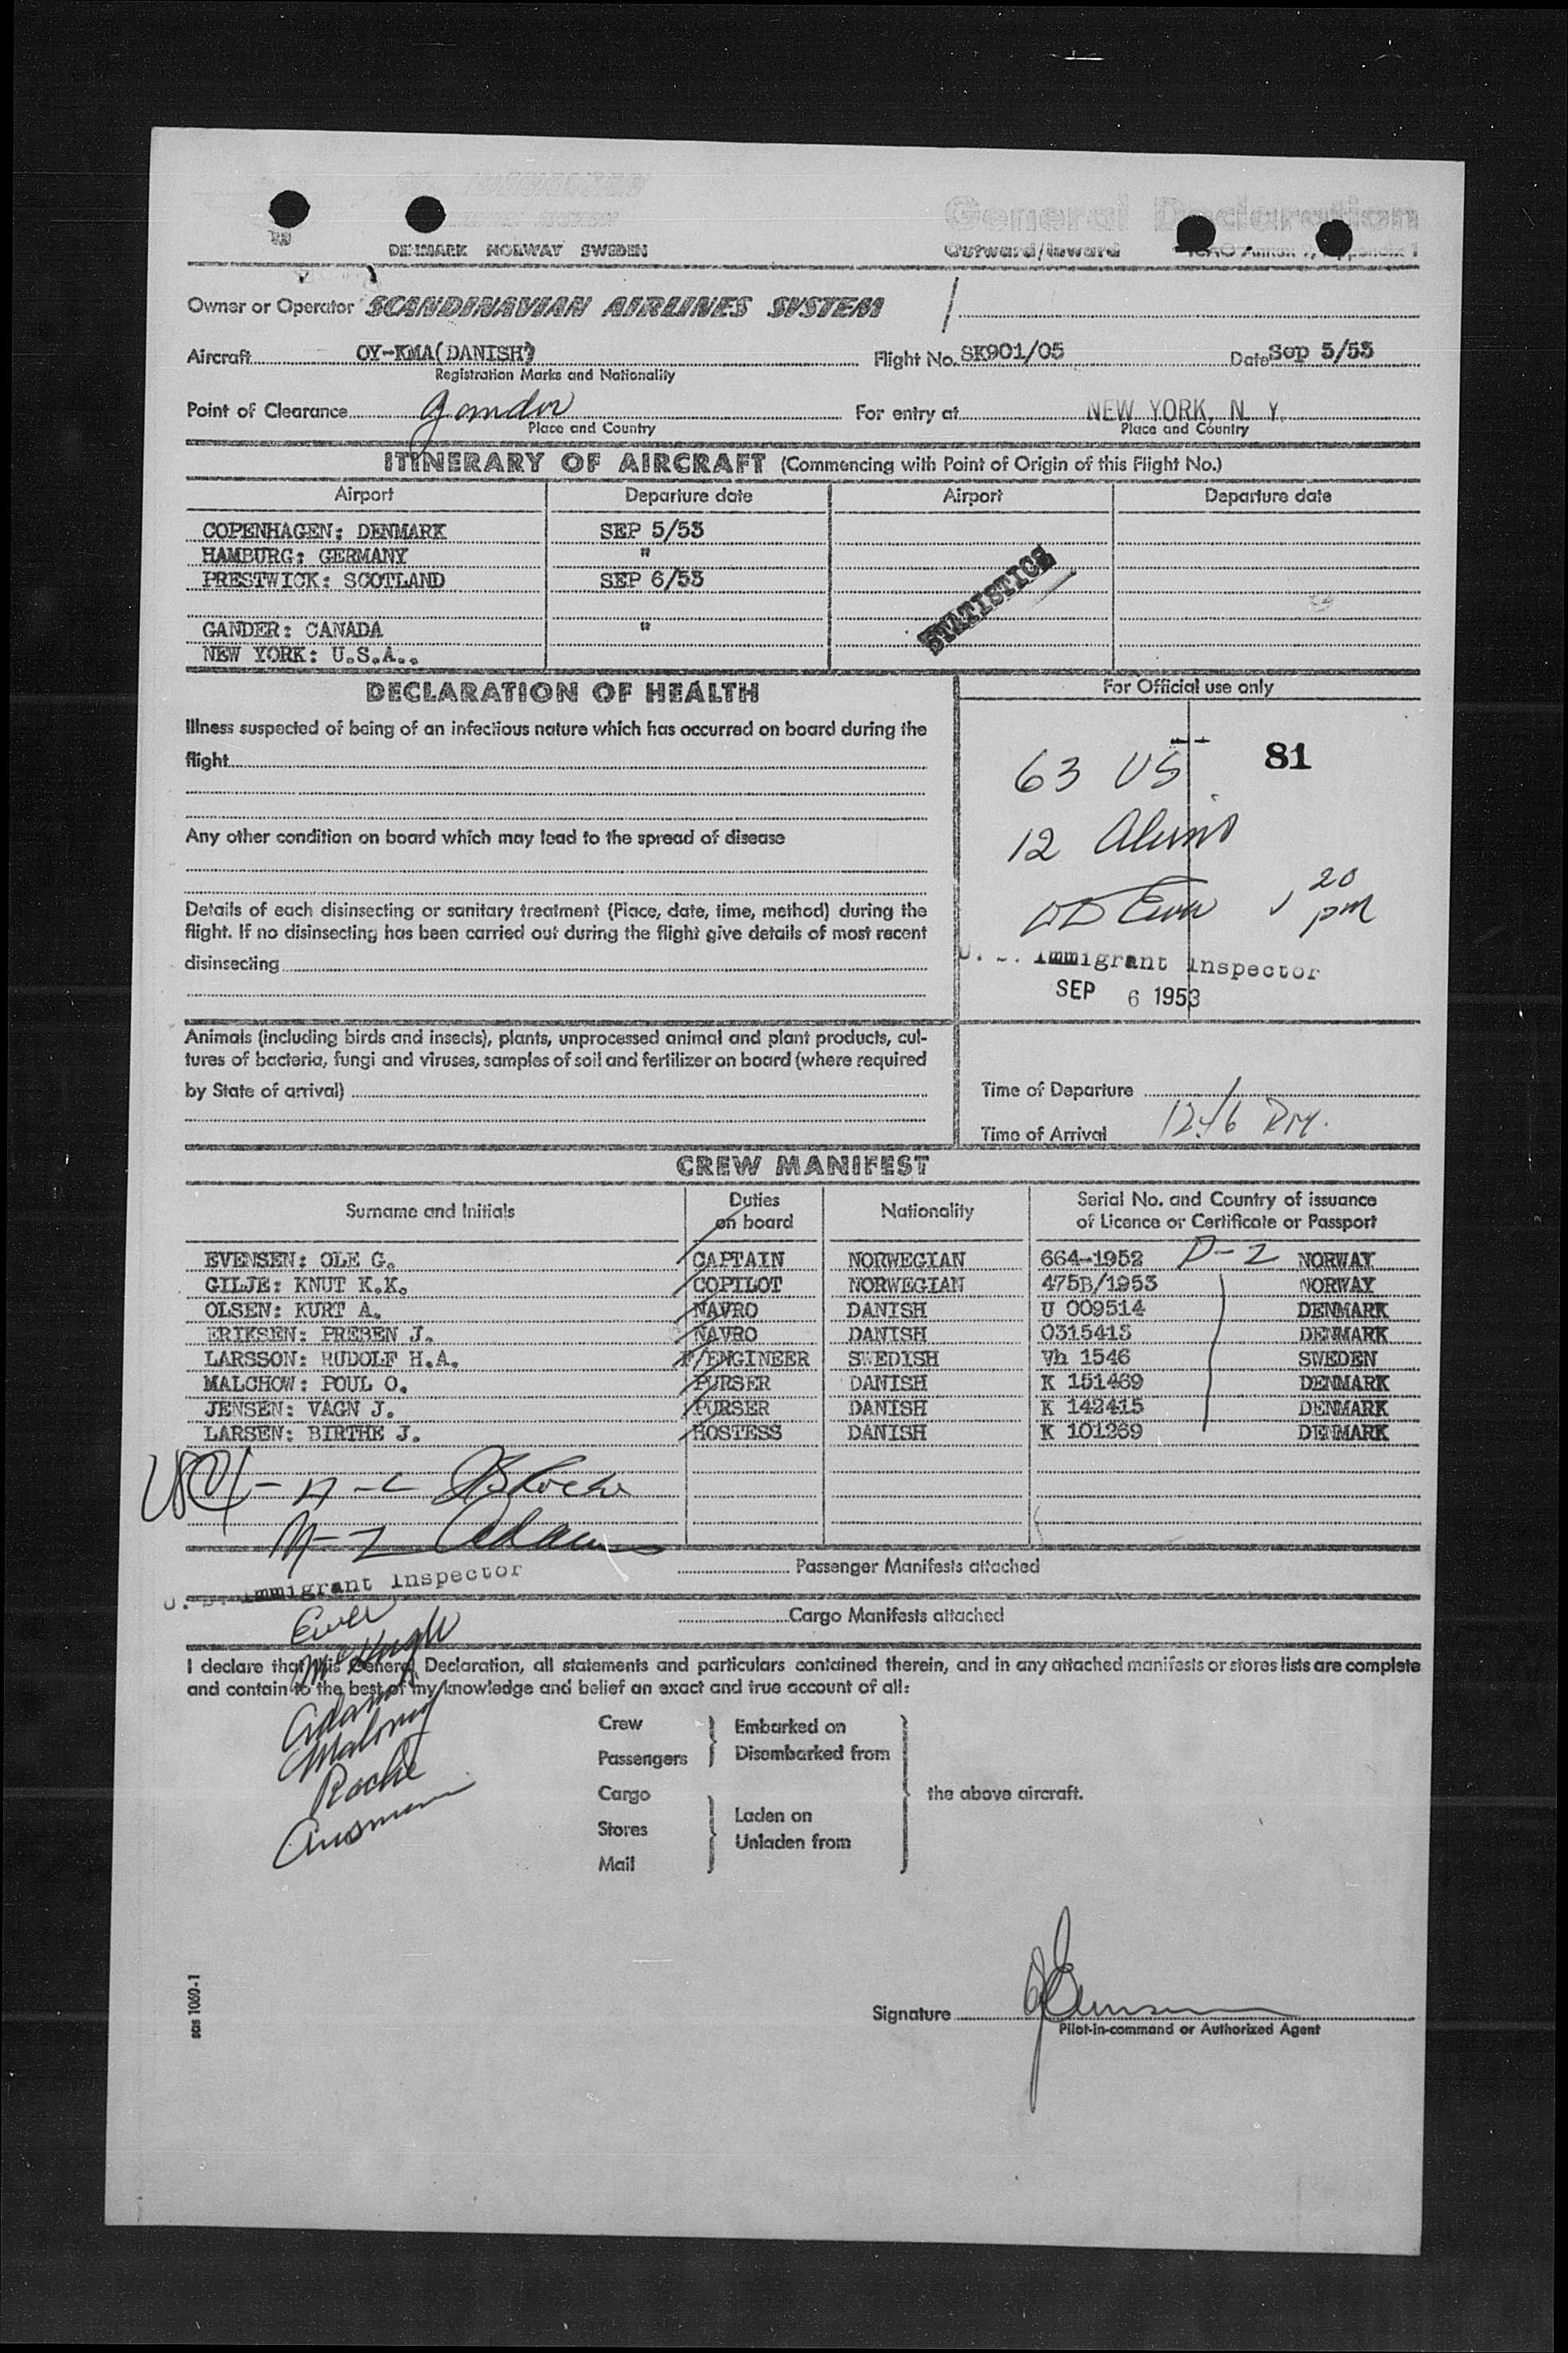 General Declaration
DENMARK NORWAY SWEDEN Outward/Inward
Owner or Operator SCANDINAVIAN AIRLINES SYSTEM
Aircraft OY-KMA(DANISH) Flight No. SK901/05 Date Sep 5/53
Registration Marks and Nationality
Point of Clearance Gander For entry at NEW YORK, N. Y.
Place and Country Place and Country
ITINERARY OF AIRCRAFT (Commencing with Point of Origin of this Flight No.)
Airport Departure date Airport Departure date
COPENHAGEN: DENMARK SEP 5/53
HAMBURG: GERMANY "
PRESTWICK: SCOTLAND SEP 6/53
STATISTICS
GANDER: CANADA "
NEW YORK: U.S.A..
DECLARATION OF HEALTH For Official use only
Illness suspected of being of an infectious nature which has occurred on board during the
flight
63 US 81
Any other condition on board which may lead to the spread of disease
12 Aliens
Details of each disinsecting or sanitary treatment (Place, date, time, method) during the
flight. If no disinsecting has been carried out during the flight give details of most recent
disinsecting
20 pm
Immigrant Inspector
SEP 6 1953
Animals (including birds and insects), plants, unprocessed animal and plant products, cul-
tures of bacteria, fungi and viruses, samples of soil and fertilizer on board (where required
by State of arrival)
Time of Departure
Time of Arrival 1246 PM.
CREW MANIFEST
Surname and Initials Duties on board Nationality Serial No. and Country of issuance of Licence or Certificate or Passport
EVENSEN: OLE G. CAPTAIN NORWEGIAN 664-1952 D-2 NORWAY
GILJE: KNUT K.K. COPILOT NORWEGIAN 475B/1953 NORWAY
OLSEN: KURT A. NAVRO DANISH U 009514 DENMARK
ERIKSEN: PREBEN J. NAVRO DANISH 0315413 DENMARK
LARSSON: RUDOLF H.A. F/ENGINEER SWEDISH Vh 1546 SWEDEN
MALCHOW: POUL O. PURSER DANISH K 151469 DENMARK
JENSEN: VAGN J. PURSER DANISH K 142415 DENMARK
LARSEN: BIRTHE J. HOSTESS DANISH K 101269 DENMARK
Adams
Passenger Manifests attached
U. S. Immigrant Inspector
Cargo Manifests attached
McHugh
I declare that this General Declaration, all statements and particulars contained therein, and in any attached manifests or stores lists are complete
and contain to the best of my knowledge and belief an exact and true account of all:
Adams
Maloney
Roche
Crew Embarked on
Passengers Disembarked from
Cargo the above aircraft.
Stores Laden on
Mail Unladen from
sas 1060-1
Signature
Pilot-in-command or Authorized Agent